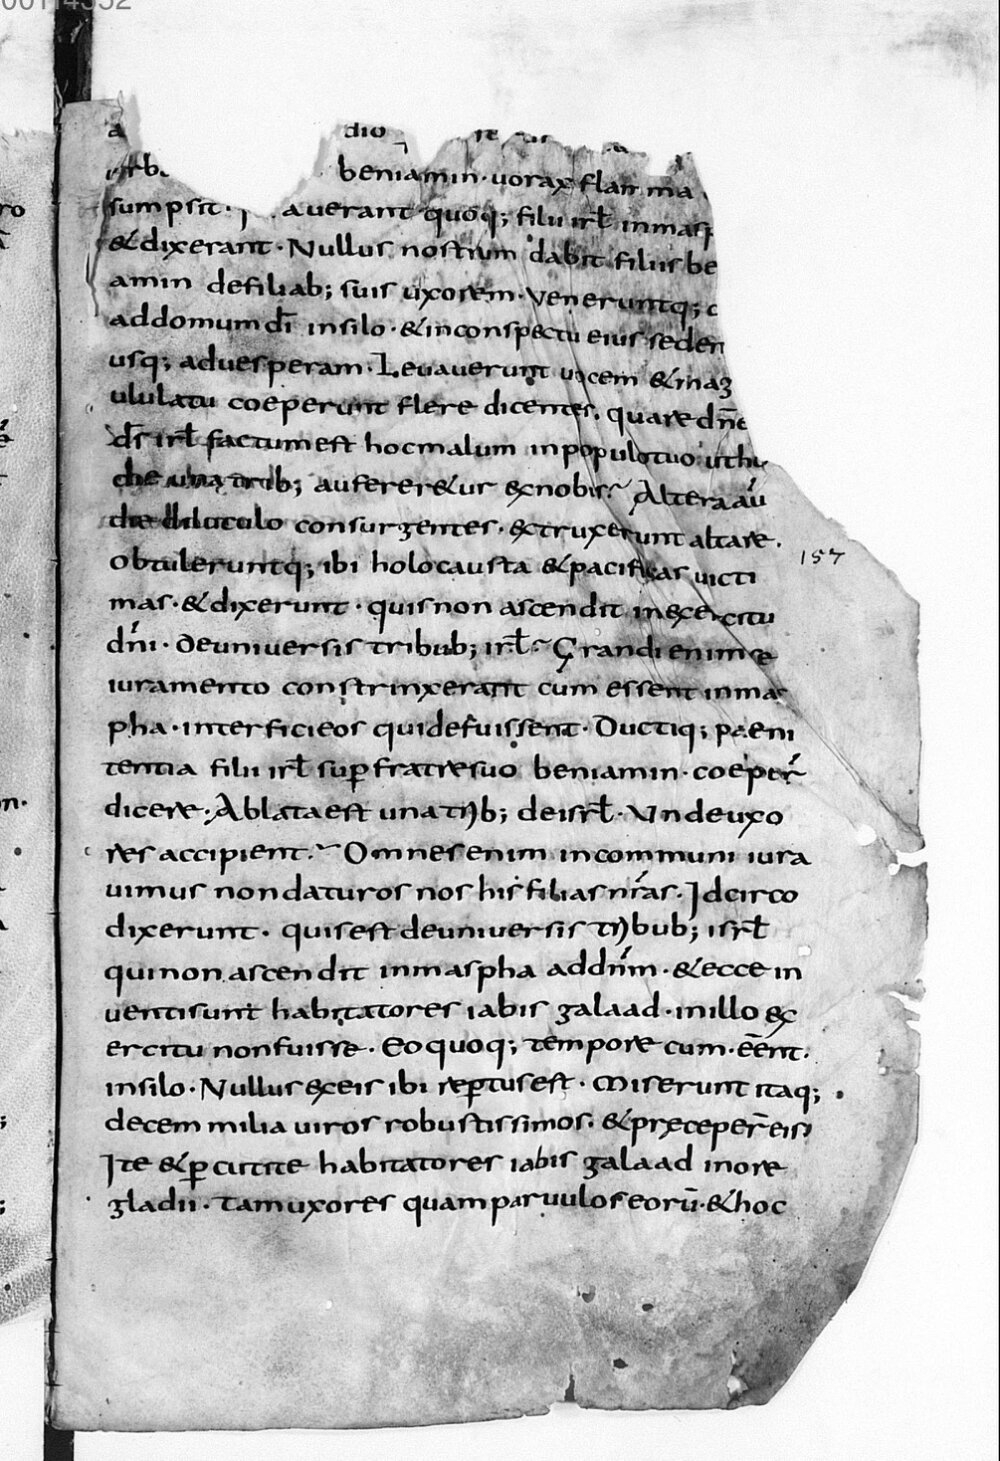 dio
beniamin · uorax flam ma
sumpsit · auerant quoq; filii irl̄ in masp
& dixerant · Nullus nostrum dabit filiis be
amin defiliab; suis uxorem · Veneruntq;
addomum dī insilo · & inconspectu eius seden
usq; aduesperam · Leuauerunt uocem & mag
ululatu coeperunt flere dicentes. quare dn̄e
ds̄ irl̄ factum est hocmalum inpopulotuo ut ho
die una trib; aufereretur exnobis Altera aū
die diluculo consurgentes · extruxerunt altare ·
Obtuleruntq; ibi holocausta & pacificas uicti
mas · & dixerunt · quis non ascendit inexercitu
dn̄i · deuniuersis tribub; irl̄ Grandi enim se
iuramento constrinxerant cum essent inmas
pha · interfici eos quidefuissent · Ductiq; paeni
tentia filii irl̄ sup̄ fratresuo beniamin · coeper̄
dicere · Ablata est una trib; deisrl̄ · Vnde uxo
res accipient Omnes enim incommuni iura
uimus non daturos nos his filias nr̄as · Idcirco
dixerunt · quis est deuniuersis tribub; isrl̄
qui non ascendit inmaspha addn̄m · & ecce in
uenti sunt habitatores iabis galaad · inillo ex
ercitu nonfuisse · Eo quoq; tempore cum · eēnt ·
insilo · Nullus exeis ibi rep̄tus est · Miserunt itaq;
decem milia uiros robustissimos · & præceper̄ eis
Ite & p̄cutite habitatores iabis galaad inore
gladii · tam uxores quam paruulos eorū · & hoc
157